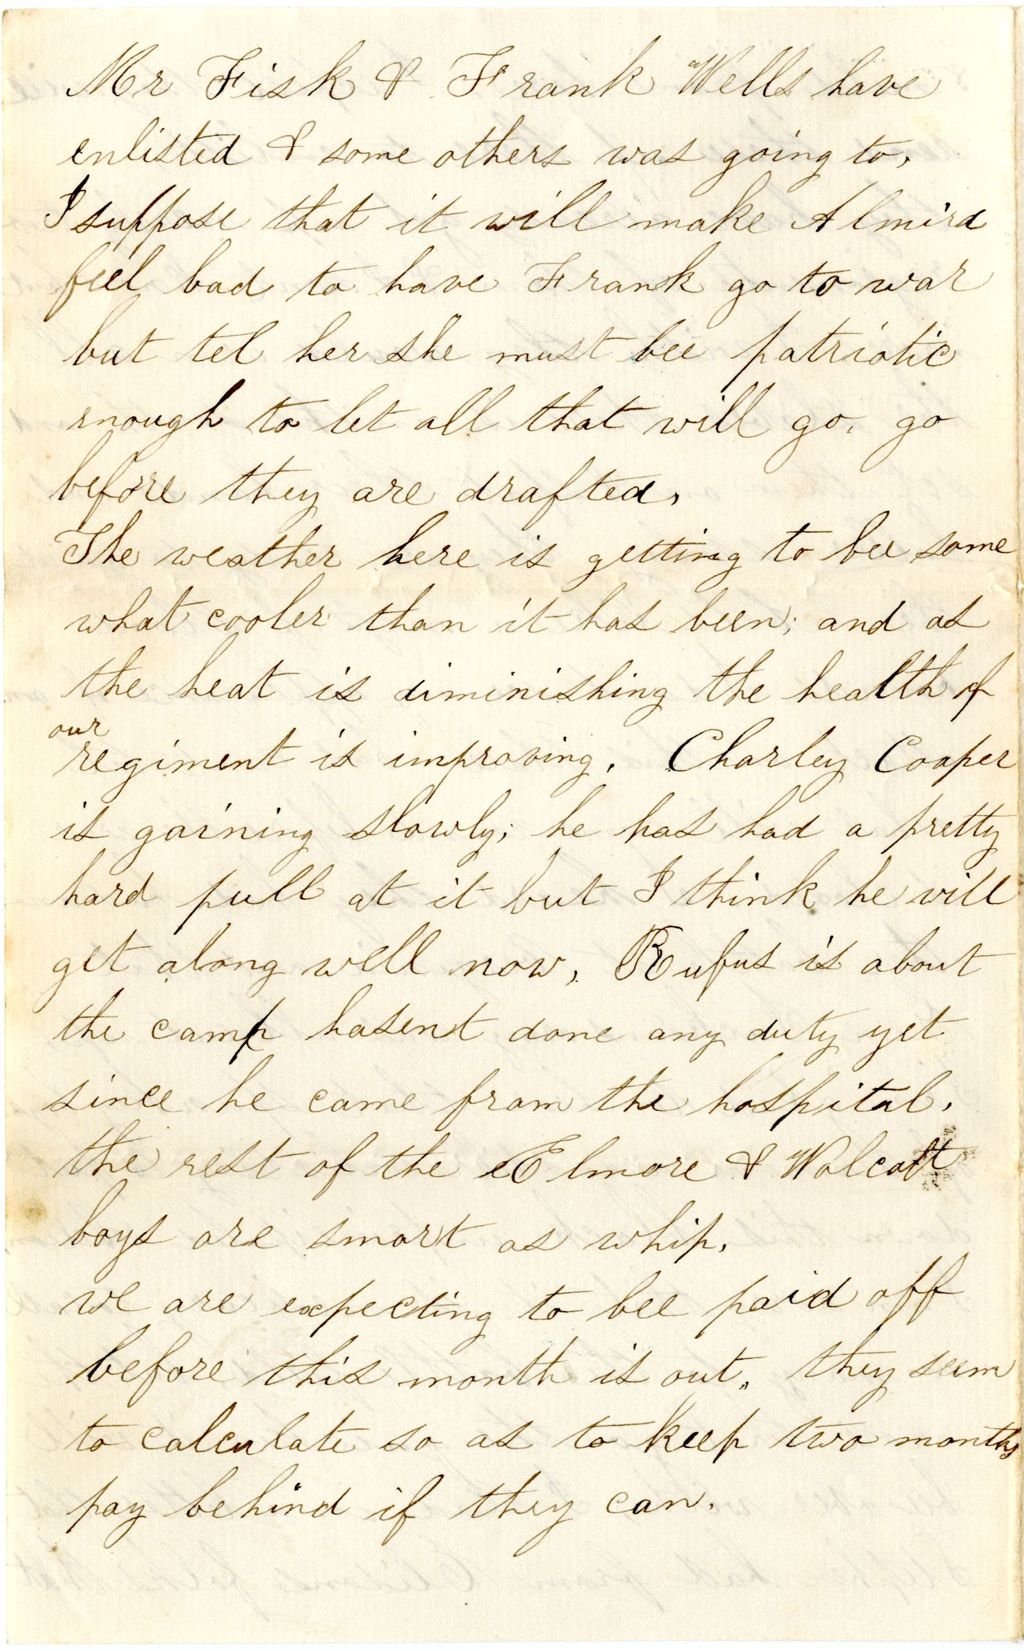 Mr Fisk & Frank Wells have
enlisted & some others was going to,
I suppose that it will make Almira
feel bad to have Frank go to war
but tel her she must bee patriotic
enough to let all that will go, go
before they are drafted,
The weather here is getting to bee some
what cooler than it has been; and as
the heat is diminishing the health of
our
regiment is improving. Charley Cooper
is gaining slowly; he has had a pretty
hard pull at it but I think he will
get along well now, Rufus is about
the camp hasent done any duty yet
since he came from the hospital.
the rest of the Elmore & Wolcott
boys are smart as whip,
we are expecting to bee paid off
before this month is out, they seem
to calculate so as to keep two months
pay behind if they can.